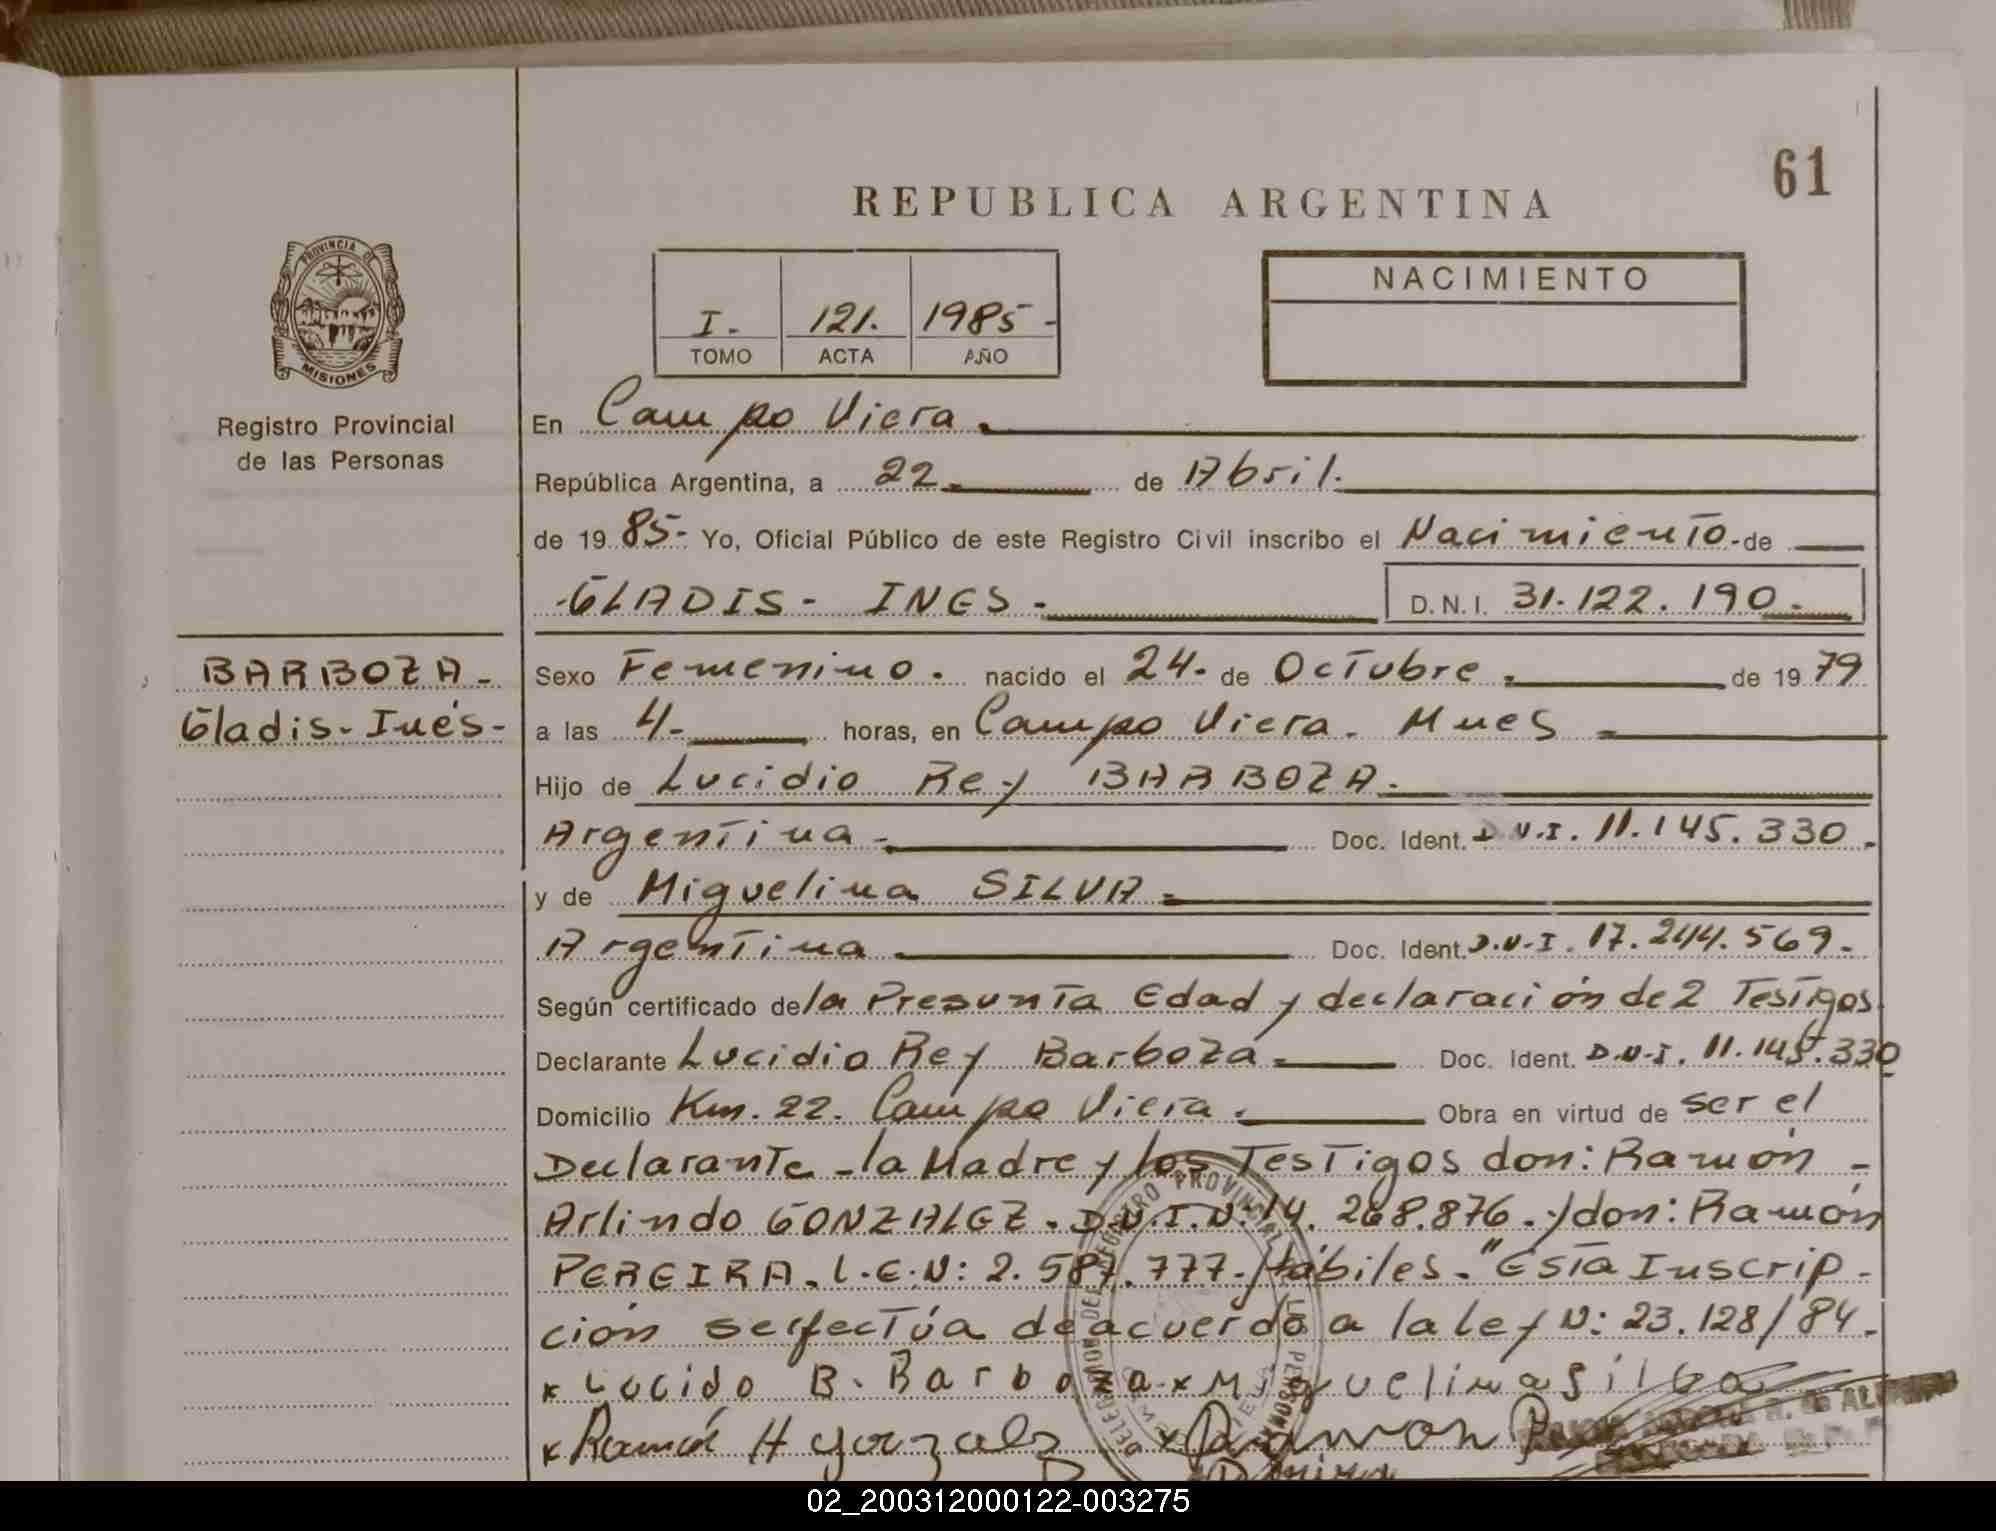 61
REPUBLICA ARGENTINA
PROVINCIA DE
MISIONES
Registro Provincial
de las Personas
I.- 121. 1985-
TOMO ACTA AÑO
NACIMIENTO
En Campo Viera.
República Argentina, a 22.- de Abril.
de 19 85- Yo, Oficial Público de este Registro Civil inscribo el Nacimiento.-de
-GLADIS- INES- D.N.I. 31.122.190.-
BARBOZA-
Gladis-Inés-
Sexo Femenino. nacido el 24- de Octubre. de 19 79
a las 4- horas, en Campo Viera. Mnes
Hijo de Lucidio Rey BARBOZA.
Argentina- Doc. Ident. D.N.I. 11.145.330-
y de Miguelina SILVA-
Argentina Doc. Ident. D.N.I. 17.244.569-
Según certificado de la Presunta Edad y declaración de 2 Testigos
Declarante Lucidio Rey Barboza- Doc. Ident. D.N.I. 11.145.330
Domicilio Km. 22. Campo Viera. Obra en virtud de ser el
Declarante -la Madre y los Testigos don: Ramón -
Arlindo GONZALEZ. D.N.I.N: 14.268.876. y don: Ramón
PEREIRA. L.E.N: 2.587.777.-/hábiles. "Esta Inscrip-
ción se efectúa de acuerdo a la ley N: 23.128/84-
x Lucido B. Barboza x Miguelina Silba
x Ramón H gonzales x Ramon P
02_200312000122-003275